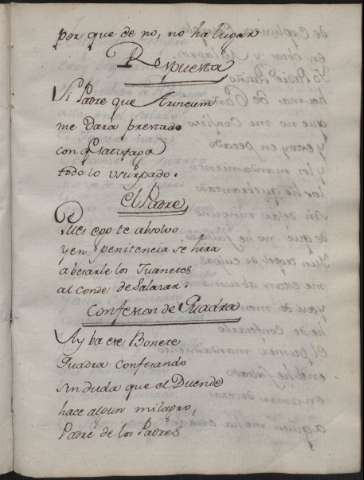 por que de no, no ha lugar
Respuesta
Si Padre que Aruncum
me dara prestado
con q satisfaga
todo lo usurpado.
El Padre
Pues ego te absolvo
y en penitencia se hira
a besarle los Juanetes
al conde de Salazar.
Confesion de Quadra
Ay ba ese Bonete
Quadra confesando
sin duda que el Duende
hace algun milagro,
Padre de los Padres